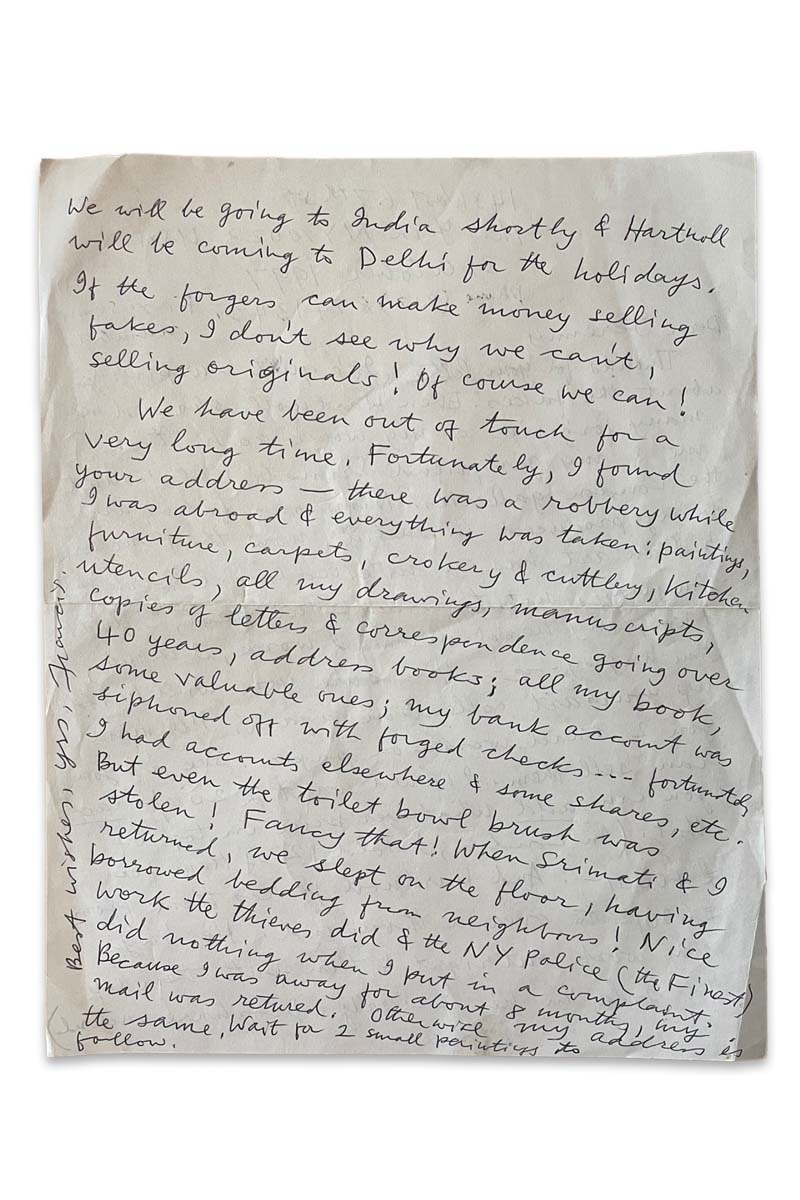 We will be going to India shortly & Hartnoll
will be coming to Delhi for the holidays.
If the forgers can make money selling
fakes, I don't see why we can't,
selling originals! Of course we can!
We have been out of touch for a
very long time. Fortunately, I found
your address — there was a robbery while
I was abroad & everything was taken: paintings,
furniture, carpets, crokery & cuttlery, Kitchen
utencils, all my drawings, manuscripts,
copies of letters & correspondence going over
40 years, address books; all my book,
some valuable ones; my bank account was
siphoned off with forged checks --- fortunately
I had accounts elsewhere & some shares, etc.
But even the toilet bowl brush was
stolen! Fancy that! When Srimati & I
returned, we slept on the floor, having
borrowed bedding from neighbours! Nice
work the thieves did & the NY Police (the Finest)
did nothing when I put in a complaint.
Because I was away for about 8 months, my
mail was retured. Otherwise my address is
the same. Wait for 2 small paintings to
follow.
Best wishes, yrs, Francis.